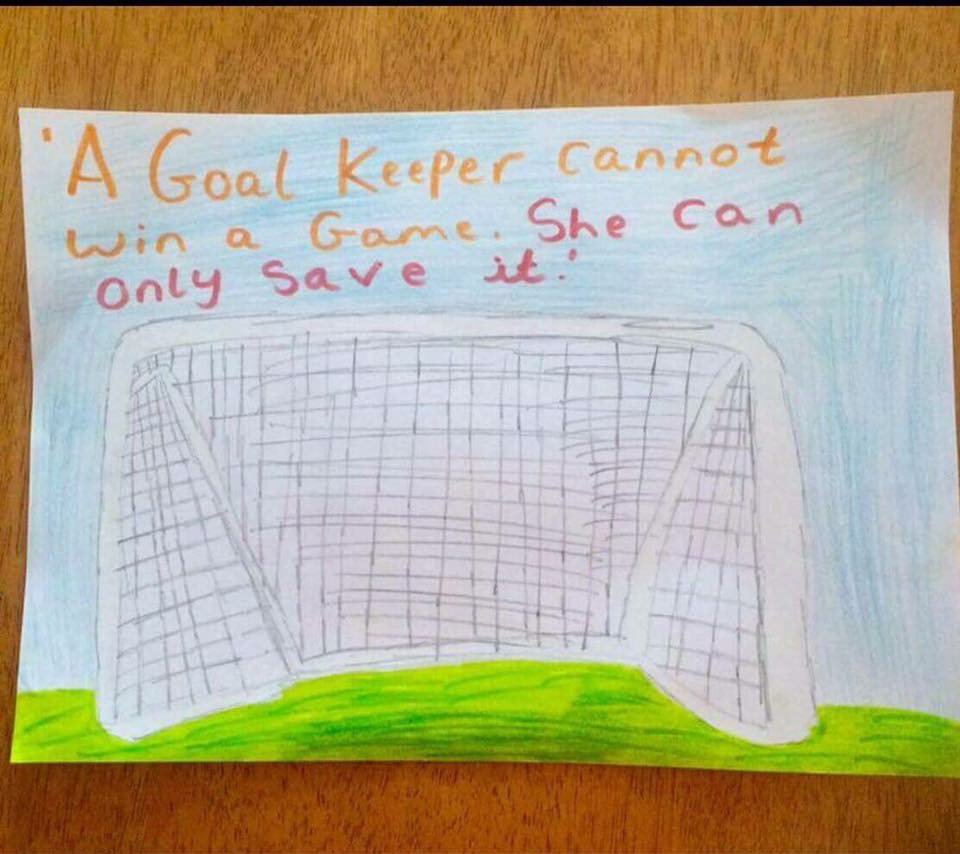 'A Goal Keeper cannot
win a Game. She can
only save it.'